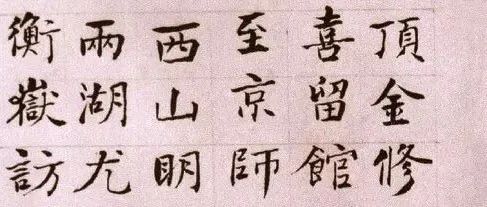 頂金修
喜留館
至京師
西山明
兩湖尤
衡嶽訪